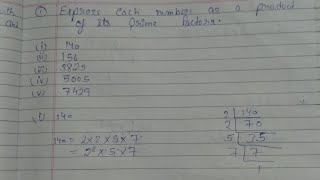 ① Express each number as a product
of its prime factors.
(i) 140
(ii) 156
(iii) 3825
(iv) 5005
(v) 7429
i) 140
140 = 2×2×5×7
= 2²×5×7
2 | 140
2 | 70
5 | 35
7 | 7
1